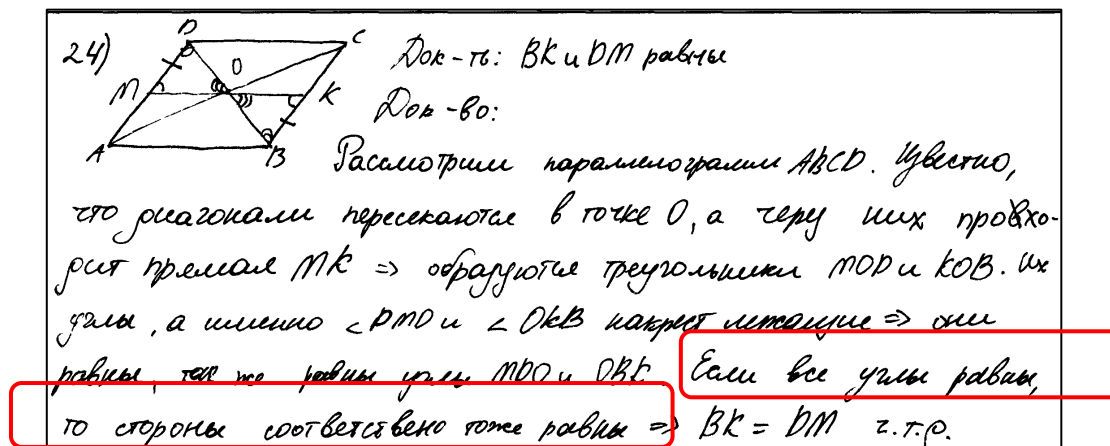 24)
D
C
O
M
K
A
B
Док-ть: BK и DM равны
Док-во:
Рассмотрим параллелограмм ABCD. Известно,
что диагонали пересекаются в точке O, а через них прохо-
дит прямая MK => образуются треугольники MOD и KOB. Их
углы, а именно ∠DMO и ∠OKB накрест лежащие => они
равны, так же равны углы MDO и OBK. Если все углы равны,
то стороны соответствено тоже равны => BK = DM ч.т.д.